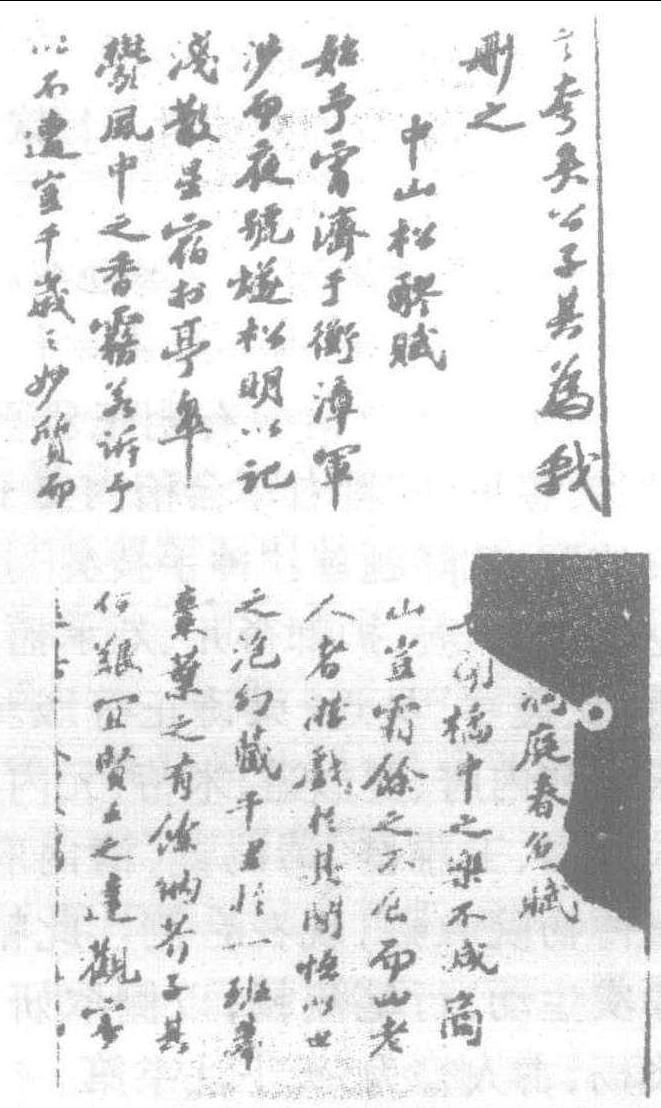 言夸矣公子其為我
刪之
中山松醪賦
始予宵濟于衡漳軍
涉而夜號燧松明以記
淺散星宿於亭皋
鬱風中之香霧若訴予
以不遭豈千歲之妙質而
洞庭春色賦
吾聞橘中之樂不減商
山豈霜餘之不食而四老
人者游戲於其間悟此世
之泡幻藏千里於一班舉
棗葉之有餘納芥子其
何艱宜賢王之達觀寄